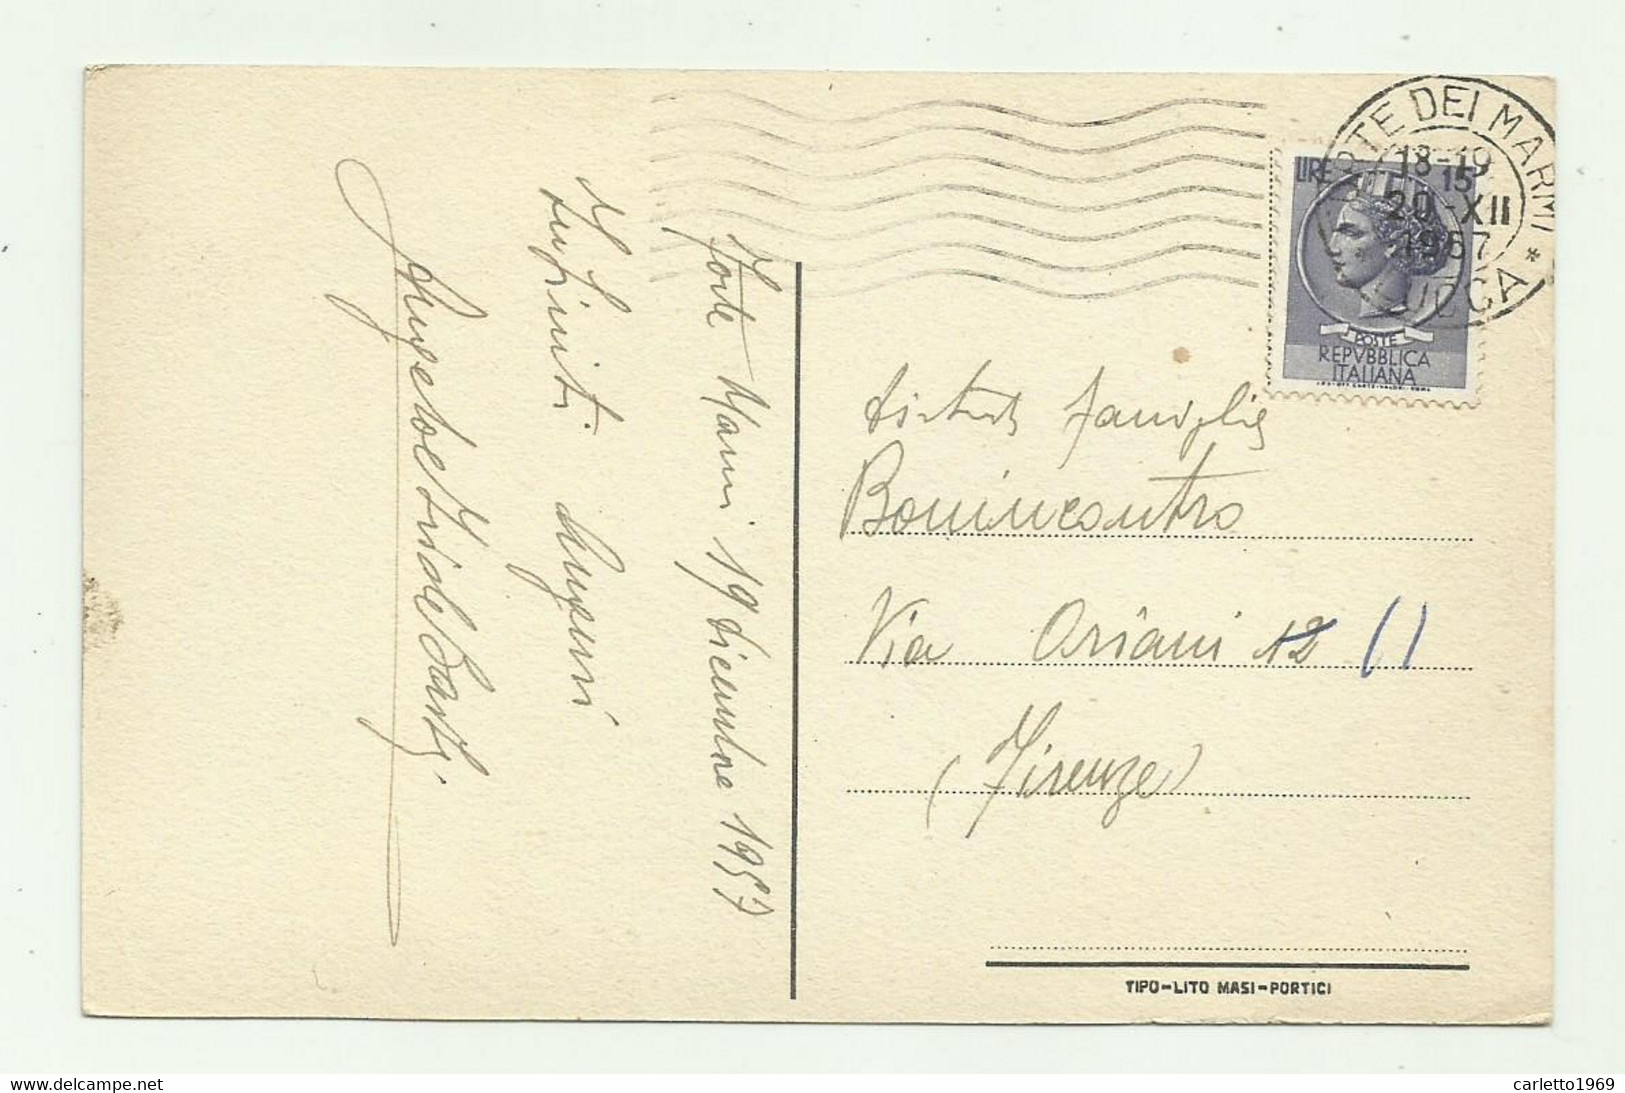 Forte Marmi 19 dicembre 1957
Infiniti Auguri
FORTE DEI MARMI * LUCCA
18-19
20-XII
1957
LIRE 15
POSTE
REPVBBLICA
ITALIANA
famiglia
Bonincontro
Via Oriani 12 11
(Firenze)
TIPO-LITO MASI-PORTICI
www.delcampe.net
carletto1969